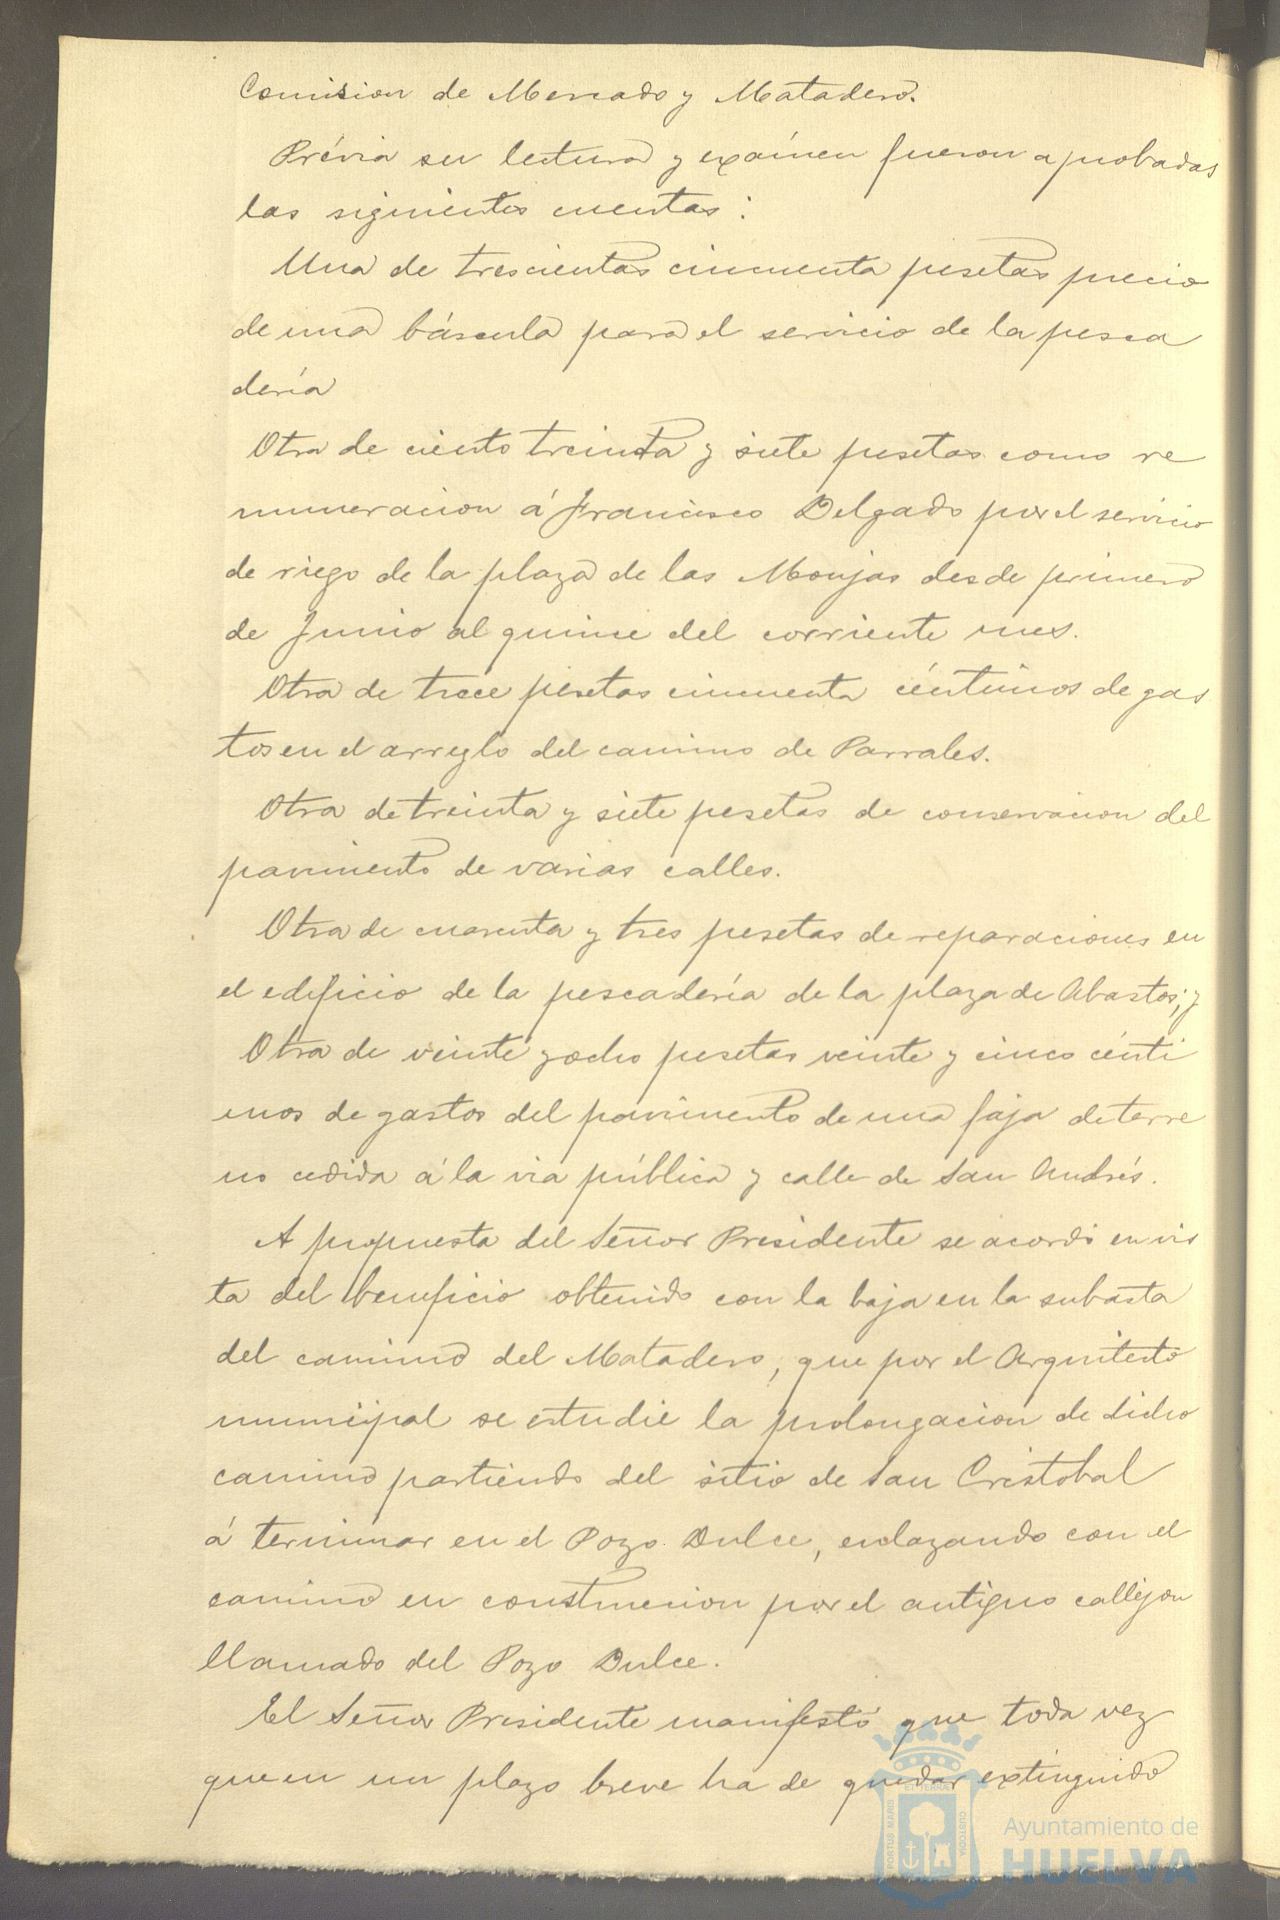 Comision de Mercado y Matadero.
Prévia su lectura y exámen fueron aprobadas
las siguientes cuentas:
Una de trescientas cincuenta pesetas precio
de una báscula para el servicio de la pesca
dería
Otra de ciento treinta y siete pesetas como re
muneracion á Francisco Delgado por el servicio
de riego de la plaza de las Monjas desde primero
de Junio al quince del corriente mes.
Otra de trece pesetas cincuenta céntimos de gas
tos en el arreglo del camino de Parrales.
Otra de treinta y siete pesetas de conservacion del
pavimento de varias calles.
Otra de cuarenta y tres pesetas de reparaciones en
el edificio de la pescadería de la plaza de Abastos; y
Otra de veinte y ocho pesetas veinte y cinco cénti
mos de gastos del pavimento de una faja de terre
no cedida á la via pública y calle de San Andrés.
A propuesta del Señor Presidente se acordó en vis
ta del beneficio obtenido con la baja en la subasta
del camino del Matadero, que por el Arquitecto
municipal se estudie la prolongacion de dicho
camino partiendo del sitio de San Cristobal
á terminar en el Pozo Dulce, enlazando con el
camino en construccion por el antiguo callejon
llamado del Pozo Dulce.
El Señor Presidente manifestó que toda vez
que en un plazo breve ha de quedar extinguido
PORTUS MARIS ET TERRAE CUSTODIA
Ayuntamiento de
HUELVA